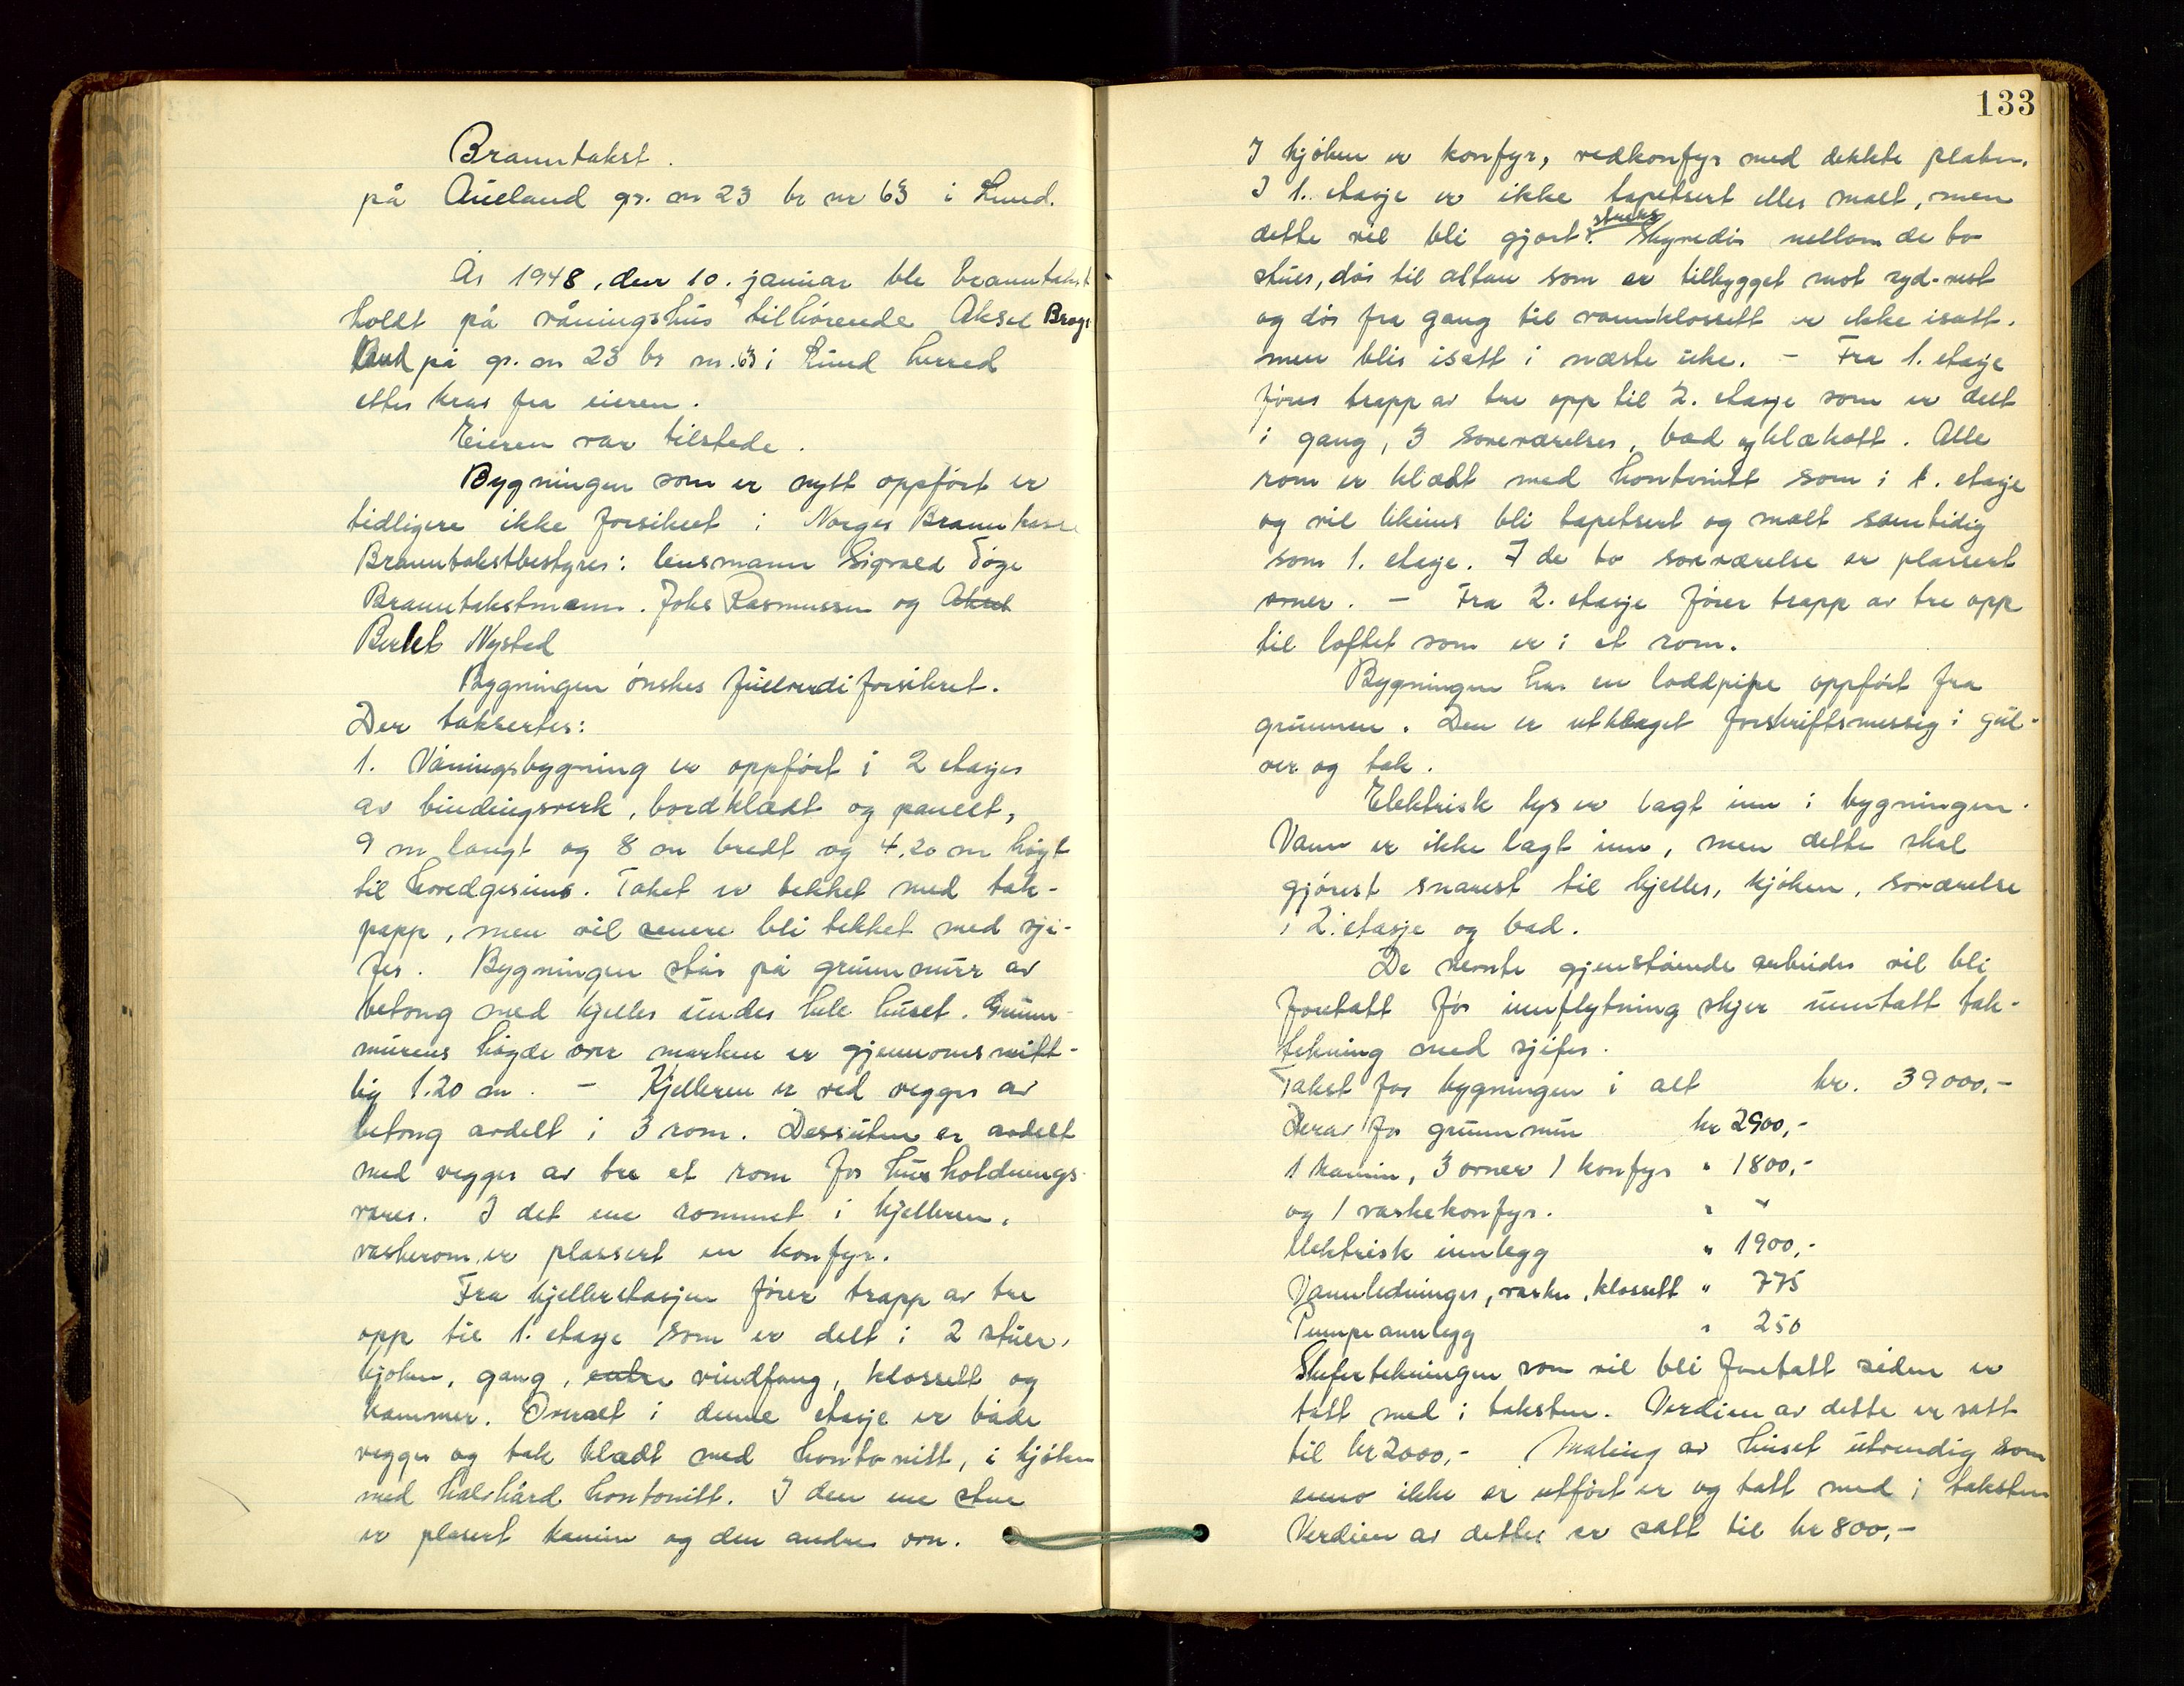 Branntakst.
på Aueland gr. nr 23 br nr 63 i Lund.
År 1948, den 10. januar ble branntakst
holdt på våningshus tilhørende Aksel
på gr. nr 23 br nr. 63 i Lund herred
etter krav fra eieren.
Eieren var tilstede.
Bygningen som er nytt oppført er
tidligere ikke forsikret i Norges Brannkasse
Branntakstbestyrer: lensmann Sigvald
Branntakstmenn. Johs Rasmussen og Aksel
Nysted
Bygningen ønskes fullverdiforsikret.
Der taksertes:
1. Våningsbygning er oppført i 2 etasjer
av bindingsverk, bordklædt og panelt,
9 m langt og 8 m bredt og 4.20 m høgt
til hovedgesims. Taket er tekket med tak-
papp, men vil senere bli tekket med sji-
fer. Bygningen står på grunnmur av
betong med kjeller under hele huset. Grunn-
murens høgde over marken er gjennomsnitt-
lig 1.20 m. - Kjelleren er ved vegger av
betong avdelt i 3 rom. Dessuten er avdelt
med vegger av tre et rom for husholdnings-
varer. I det ene rommet i kjelleren,
vaskerom, er plassert en komfyr.
Fra kjelleretasjen fører trapp av tre
opp til 1. etasje som er delt i 2 stuer,
kjøken, gang, entre vindfang, klossett og
kammer. Overalt i denne etasje er både
vegger og tak klædt med hontonitt, i kjøken
med halvhård hontonitt. I den ene stue
er plasert kamin og den andre ovn.
133
I kjøken er komfyr, vedkomfyr med dekkte plater.
I 1. etasje er ikke tapetsert eller malt, men
straks
dette vil bli gjort. Skyvedør mellom de to
stuer, dør til altan som er tilbygget mot syd-vest
og dør fra gang til vannklossett er ikke isatt.
men blir isatt i næste uke. - Fra 1. etasje
fører trapp av tre opp til 2. etasje som er delt
i gang, 3 soveværelser, bad og klækott. Alle
rom er klædt med hontonitt som i 1. etasje
og vil likeins bli tapetsert og malt samtidig
som 1. etasje. I de to soveværelse er plassert
ovner. - Fra 2. etasje fører trapp av tre opp
til loftet som er i et rom.
Bygningen har en loddpipe oppført fra
grunnen. Den er utkraget forskriftsmessig i gul-
ver og tak.
Elektrisk lys er lagt inn i bygningen.
Vann er ikke lagt inn, men dette skal
gjørest snarest til kjeller, kjøken, soværelse
i 2. etasje og bad.
De nevnte gjenstående arbeider vil bli
foretatt før innflytning skjer unntatt tak-
tekning med sjifer.
Takst for bygningen i alt kr. 39000,-
Derav for grunnmur kr 2900,-
1 kamin, 3 ovner 1 komfyr " 1800,-
og 1 vaskekomfyr. " "
Elektrisk innlegg " 1900,-
Vannledninger, vasker, klossett " 775
Pumpeannlegg " 250
Skifertekningen som vil bli foretatt siden er
tatt med i taksten. Verdien av dette er satt
til kr 2000,- Maling av huset utvendig som
enno ikke er utført er og tatt med i taksten
Verdien av dette er satt til kr 800,-